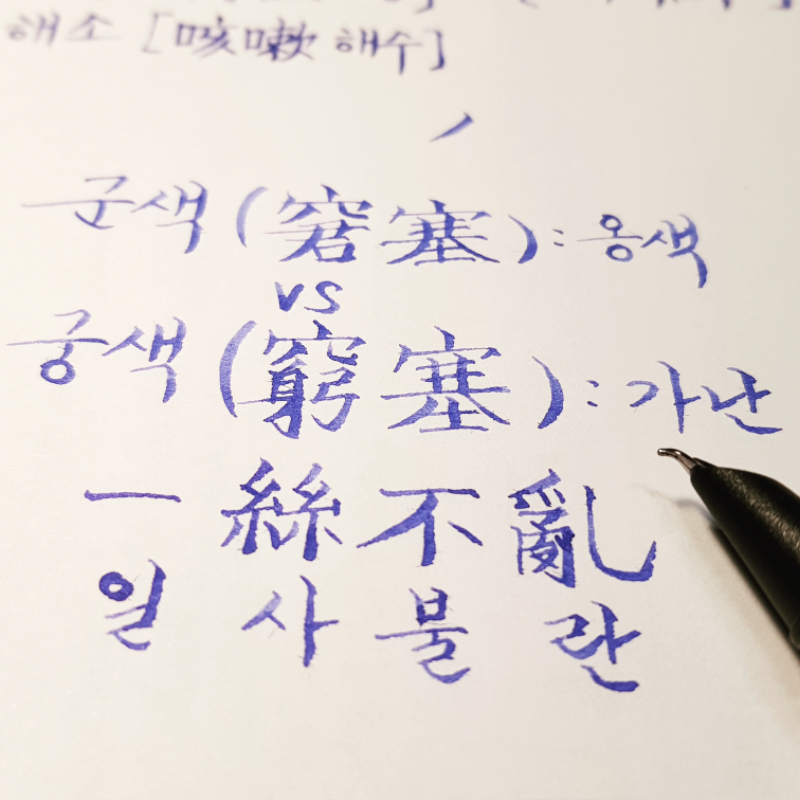 해소 [咳嗽 해수]
군색 (窘塞) : 옹색
vs
궁색 (窮塞) : 가난
一 絲 不 亂
일 사 불 란